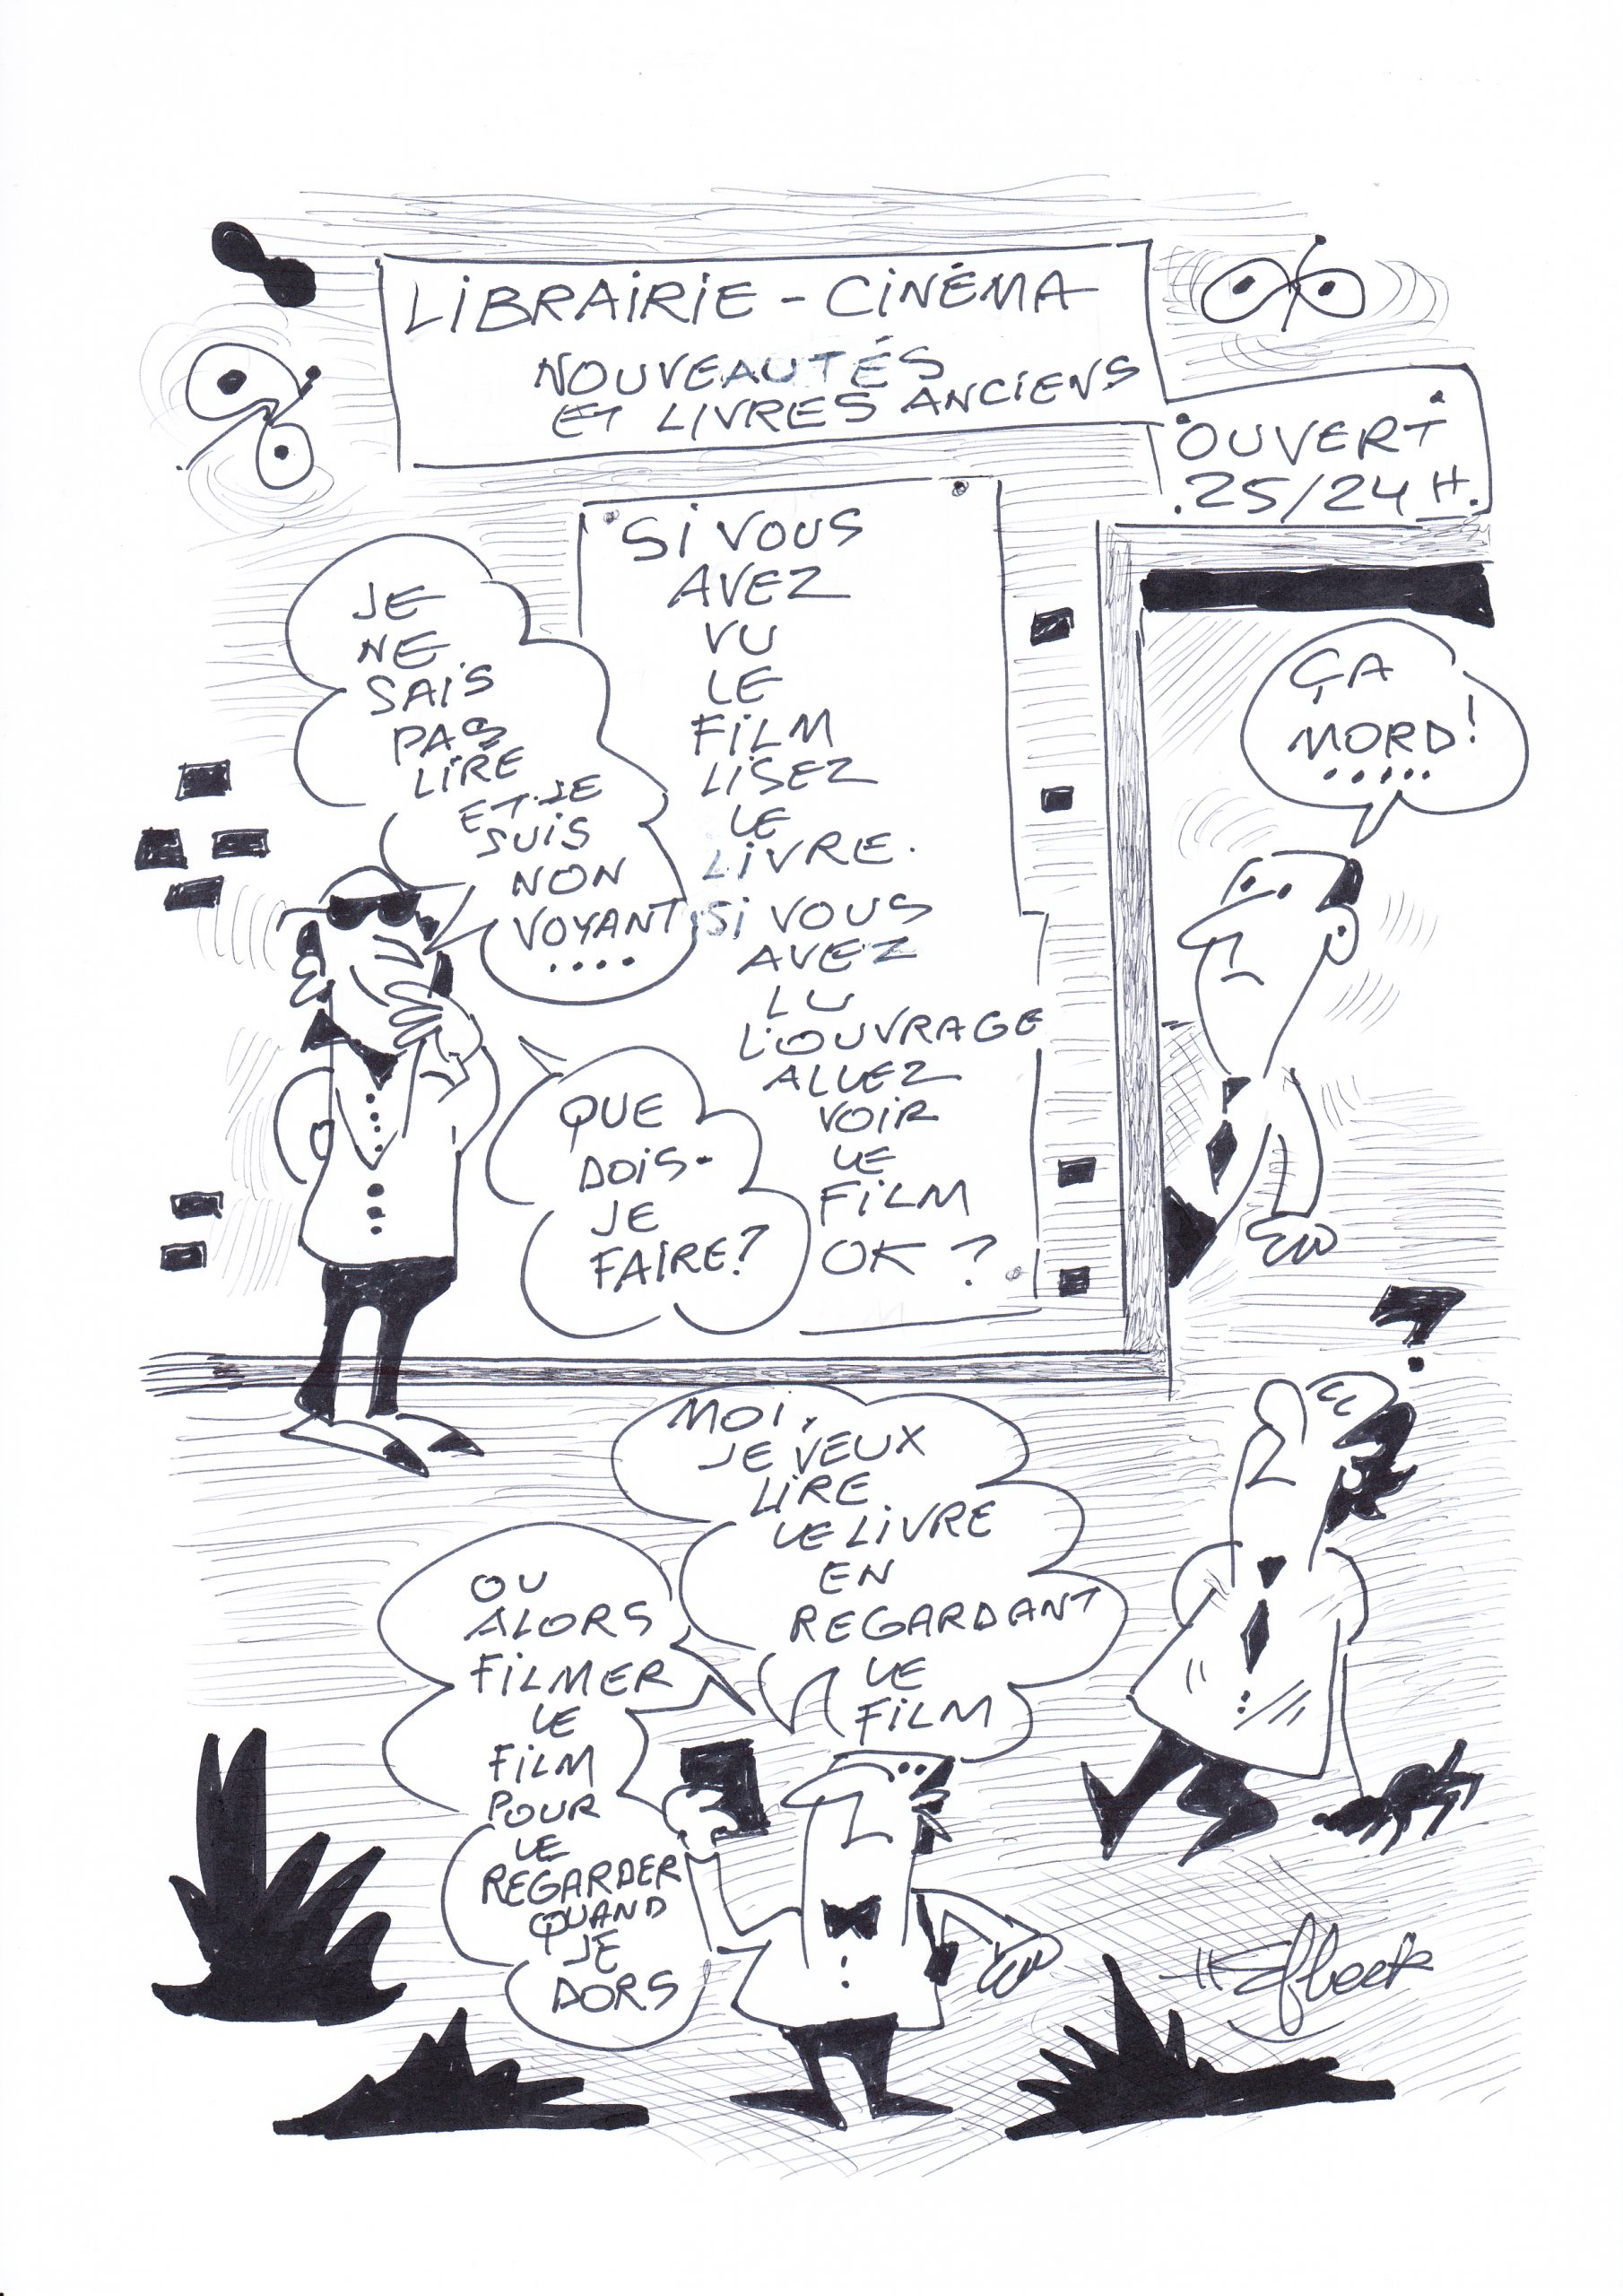 LIBRAIRIE - CINÉMA
NOUVEAUTÉS
ET LIVRES ANCIENS
OUVERT
25/24 H.
SI VOUS
AVEZ
VU
LE
FILM
LISEZ
LE
LIVRE.
SI VOUS
AVEZ
LU
L'OUVRAGE
ALLEZ
VOIR
LE
FILM
OK ?
JE
NE
SAIS
PAS
LIRE
ET JE
SUIS
NON
VOYANT
....
QUE
DOIS-
JE
FAIRE?
ÇA
MORD!
.....
?
MOI,
JE VEUX
LIRE
LE LIVRE
EN
REGARDANT
LE
FILM
OU
ALORS
FILMER
LE
FILM
POUR
LE
REGARDER
QUAND
JE
DORS